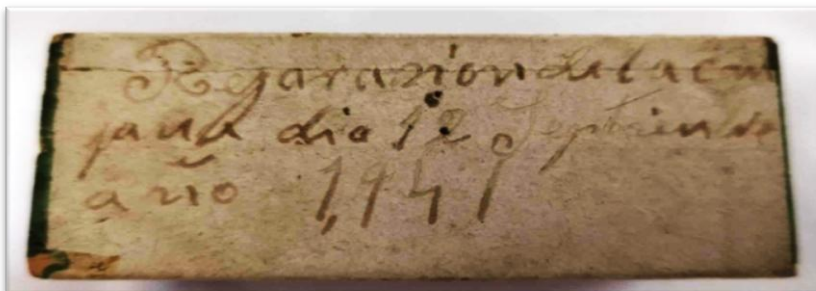 Regarazion de la cam
jana dia 12 Septienbr
año 1,941